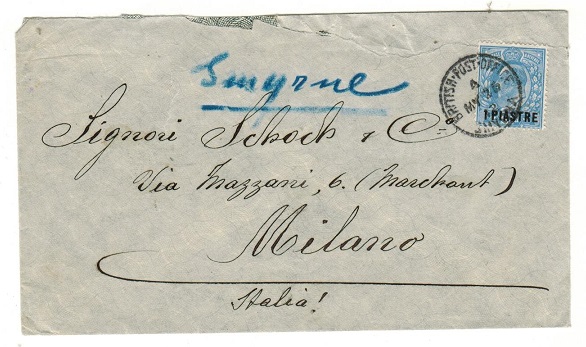 Smyrne
BRITISH POST OFFICE
SMYRNA
1 PIASTRE
Signori Schoch & C°
Via Mazzani, 6. (Marchant)
Milano
Italia!